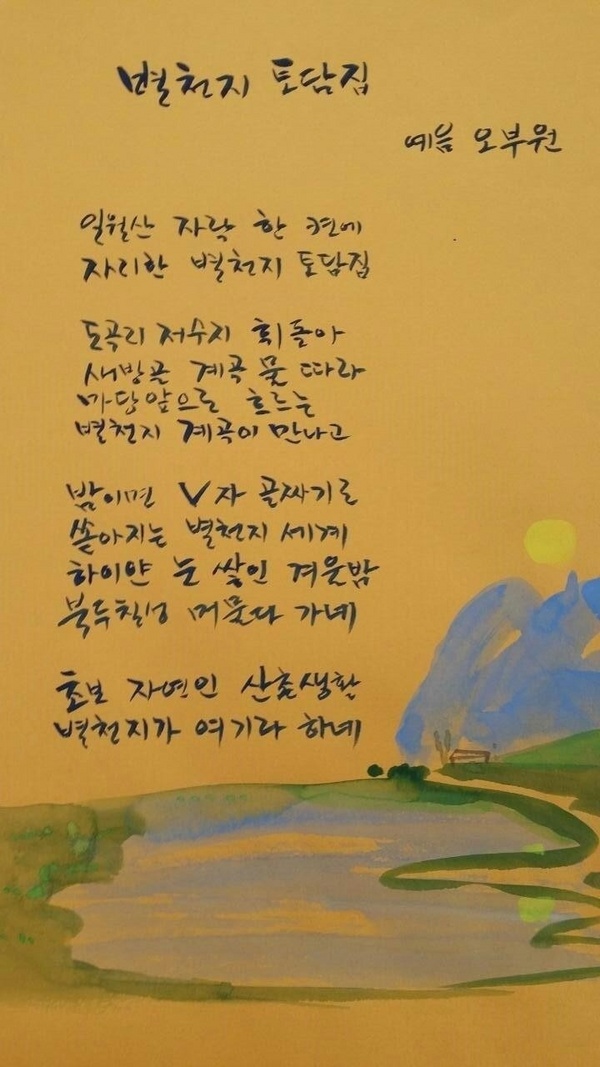 별천지 토담집
예음 오부원
일월산 자락 한 켠에
자리한 별천지 토담집
도곡리 저수지 휘돌아
새방골 계곡 물 따라
마당앞으로 흐르는
별천지 계곡이 만나고
밤이면 V자 골짜기로
쏟아지는 별천지 세계
하이얀 눈 쌓인 겨울밤
북두칠성 머물다 가네
초보 자연인 산촌생활
별천지가 여기라 하네